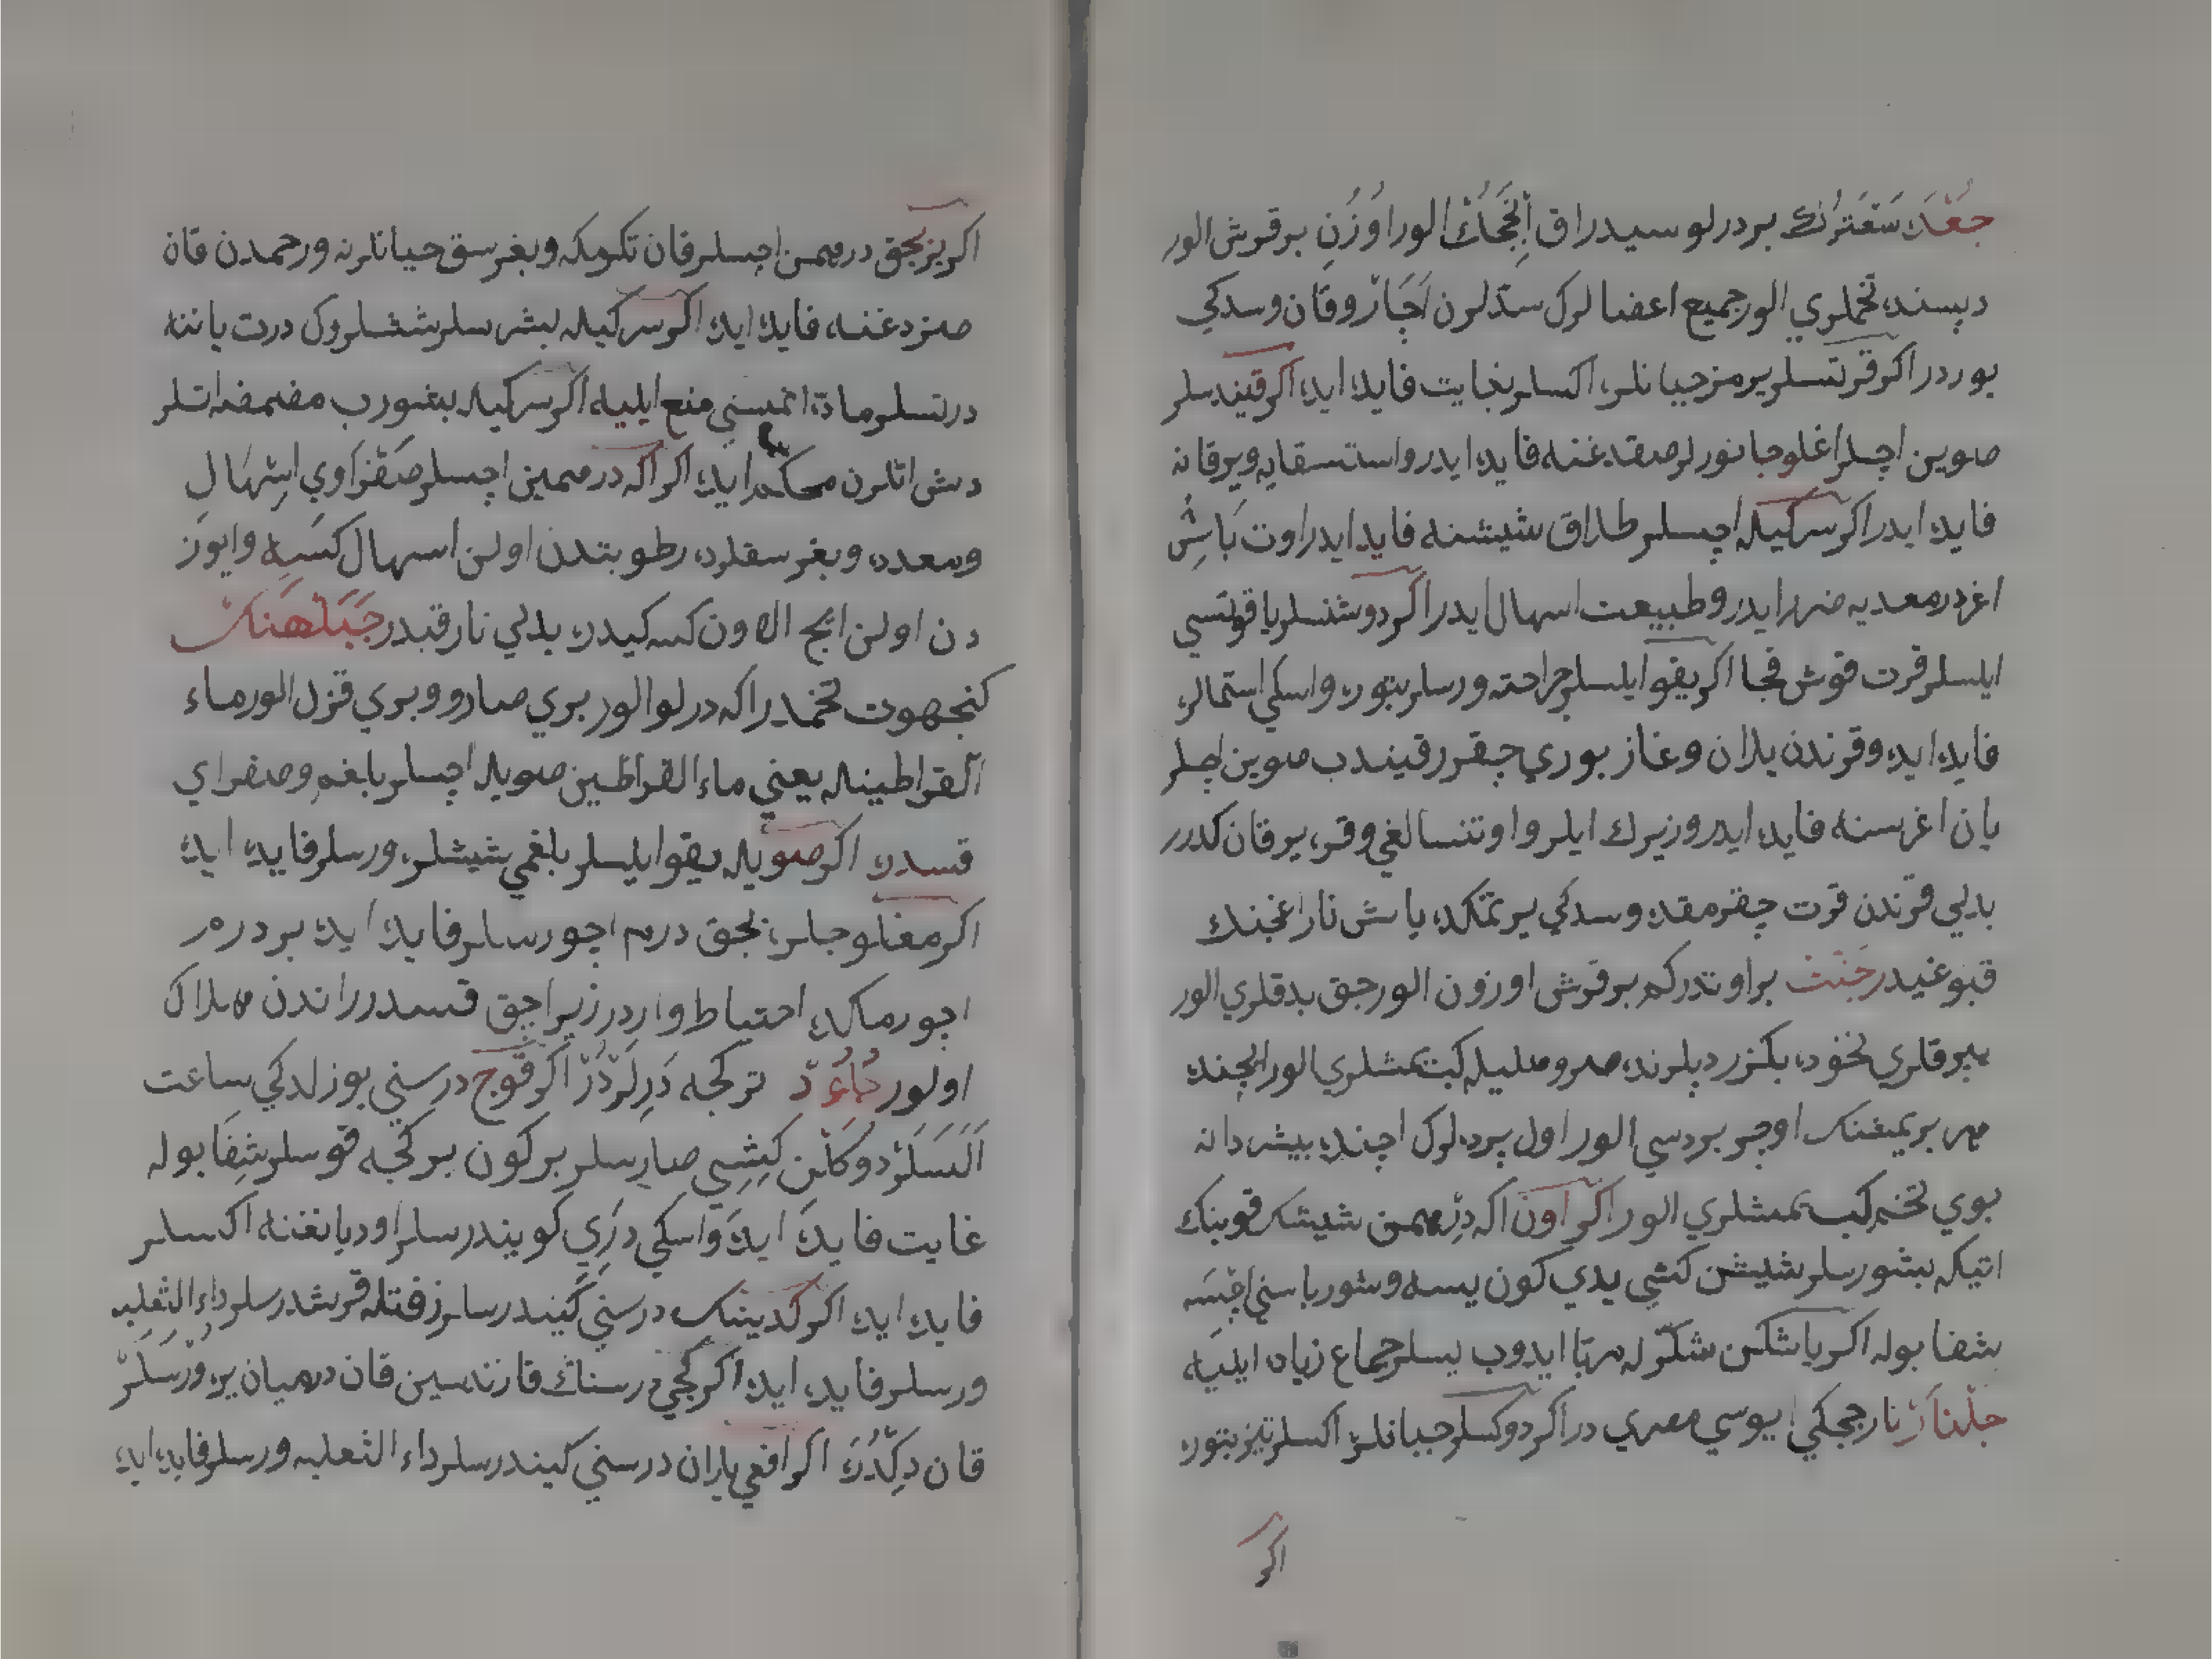 جَعْدَ سَعْتَرُكْ بر درلو سيدر اق اِنْجَكْ الور اوُزُنِ بر قرش الور
دپسنده تخملري الور جميع اعضالرك ستدلرن اَچَارْ وقان وسدكي
يوردر اكر قرتسلر يرمز جبانلره اكسلر بغايت فايده ايده اكر قيندسلر
صوين اچلر اغلو جانورلر صقدغنه فايده ايدر واستسقايه ويرقانه
فايده ايدر اكر سركيله اچسلر طلاق شيشنه فايده ايدر اوت بَاشِ
اغردر معديه ضرر ايدر وطبيعت اسهال ايدر اكر دوشنسلر يا قوتسي
ايلسلر قرت قوش قچا اكر يقو ايلسلر جراحته ورسلر بتوره واسكي استمالره
فايده ايده وقرندن يلان وغاز بوري چقرر قيندب صوين اچلر
يان اغرسنه فايده ايدر وزيرك ايلر واونتسالغي وقره يرقان كدرر
بدلي قرندن قرت چقرمقده وسدكي يرتمكده ياش نار اغجنك
قبوغيدر جَنْتْ بر اوتدركم بر قرش اوزون الور جق بدقلري الور
يپرقلري نخوده بكزر دپلرنده صرو صليله كبت يمشلري الور ايچنده
هر بر يمشنك اوچر بردسي الور اول پرده لرك اچنده بيشر دانه
بوي تخم كب يمشلري الور اكر اون اكه درهمن شيشك قوينك
اتيكه بشورسلر شيشن كشي يدي كون يسه وشورباسني اچسَه
شفا بوله اكر ياشكن شكرله مربّا ايدوب يسلر جماع زياده ايليه
جلْنَارْ نار چچكي ايوسي مصري در اكر دوكسلر جبانلره اكسلر تيز بتوره
اكر
اكر بزبچق درهمن اچسلر قان تكومكه وبغرسق حياتلرنه ورحمدن قان
صزدغنه فايده ايده اكر سركيله بشرسلر ششلروك درت ياننه
درتسلر ماده انمسني منع ايليه اكر سركيله بشورب مضمضه اتلر
دش اتلرن محكم ايده اكر اكه درهمين اچسلر صَفْرَاوي اسْهَالِ
ومعده وبغرسقلرده رطوبتدن اولن اسهال كَسَه وايوز
دن اولن ايج الاون كسه كيدره بدلي نار قبدر جَبَلْهَنَكْ
كنجهوت تخمدر اكه درلو الور بري صارو وبري قزل الور ماء
القراطينله يعني ماء القراطين صويله اچسلر بلغم وصفراي
قسدره اكر صويله يقو ايلسلر بلغمي شيشلره ورسلر فايده ايده
اكر مغلوجلره بچق درهم اچورسلر فايده ايده بر درهم
اچورمكده احتياط واردر زيرا چق قسدرر اندن هلاك
اولور جُاءُدْ تركجه دَرِلَرْدُرْ اكر قوج درسني يوزلدكي ساعت
اَلَسَلَرْ دوكَلَنْ كِشِيِ صارسلر بر كون بر كجه قوسلر شِفَا بوله
غايت فايدَه ايدَه وَاسكي دَرِي كويندرسلر اود يانغنه اكسلر
فايده ايده اكر كدينك درسني كيندرسلر زفتله قرشدرسلر داء الثعلبه
ورسلر فايده ايده اكر كچي درسنك قازنتسين قان درهيان يره ورسَلَرْ
قان دِكْدُرَ اكر افعي يلان درسني كيندرسلر داء الثعلبه ورسلر فايده ايده